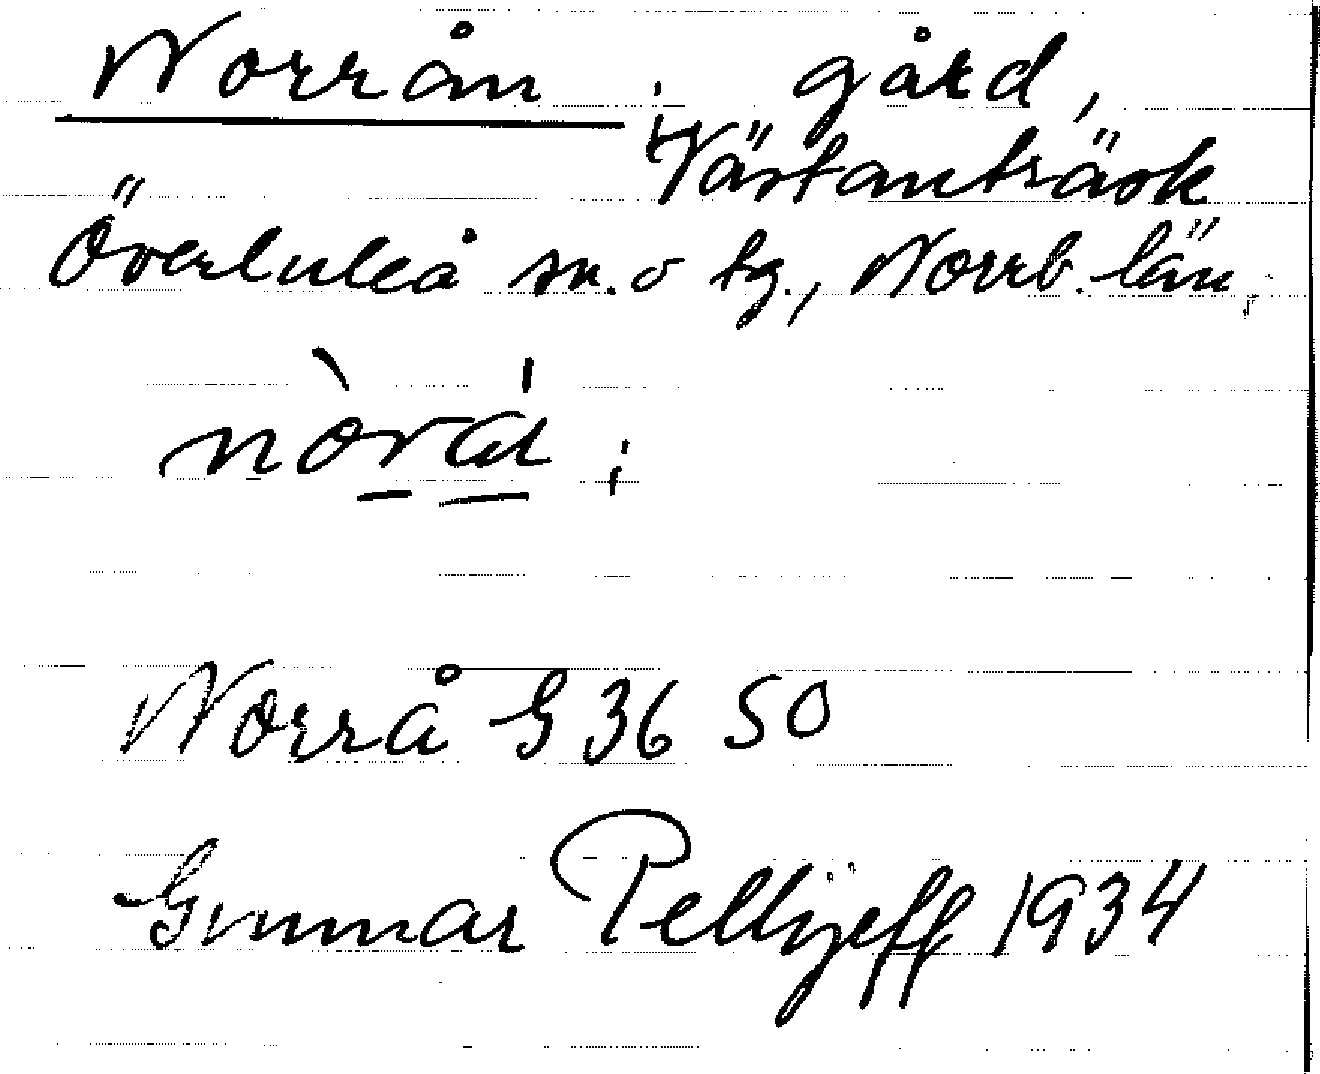 Norrån ; gård,
i Västanträsk
Överluleå sn. o tg., Norrb. län,
nòrá ;
Norrå G 36 50
Gunnar Pellijeff 1934